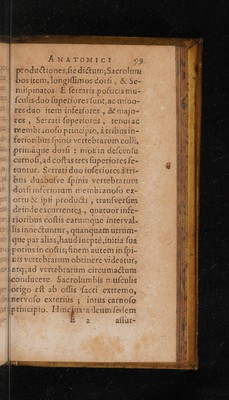 ANATOMICI 59
productiones, sic dictum; Sacrolum
bos item, longissimos dorsi, & Se-
mispinatos. E serratis posticis mu-
sculis duo superiores sunt, ac mino-
res duo item inferiores, & majo-
res, Serrati superiores, tenui ac
membranoso principio, à tribus in-
ferioribus spinis vertebrarum colli,
primáque dorsi: mox in descensu
carnosi, ad costas tres superiores fe-
runtur. Serrati duo inferiores à tri-
bus duabusve spinis vertebrarum
dorsi inferiorum membranoso ex-
ortu & ipsi producti, transversim
deinde excurrentes, quatuor infe-
rioribus costis earumque interval-
lis innectuntur, quanquam utrum-
que par aliàs, haud ineptè, initia sua
potius in costis; finem autem in spi-
nis vertebrarum obtinere videatur,
atq; ad vertebrarum circumactum
conducere. Sacrolumbis musculis
origo est ab ossis sacri extremo,
nervoso exterius; intus carnoso
principio. sedem
E 2 assur-